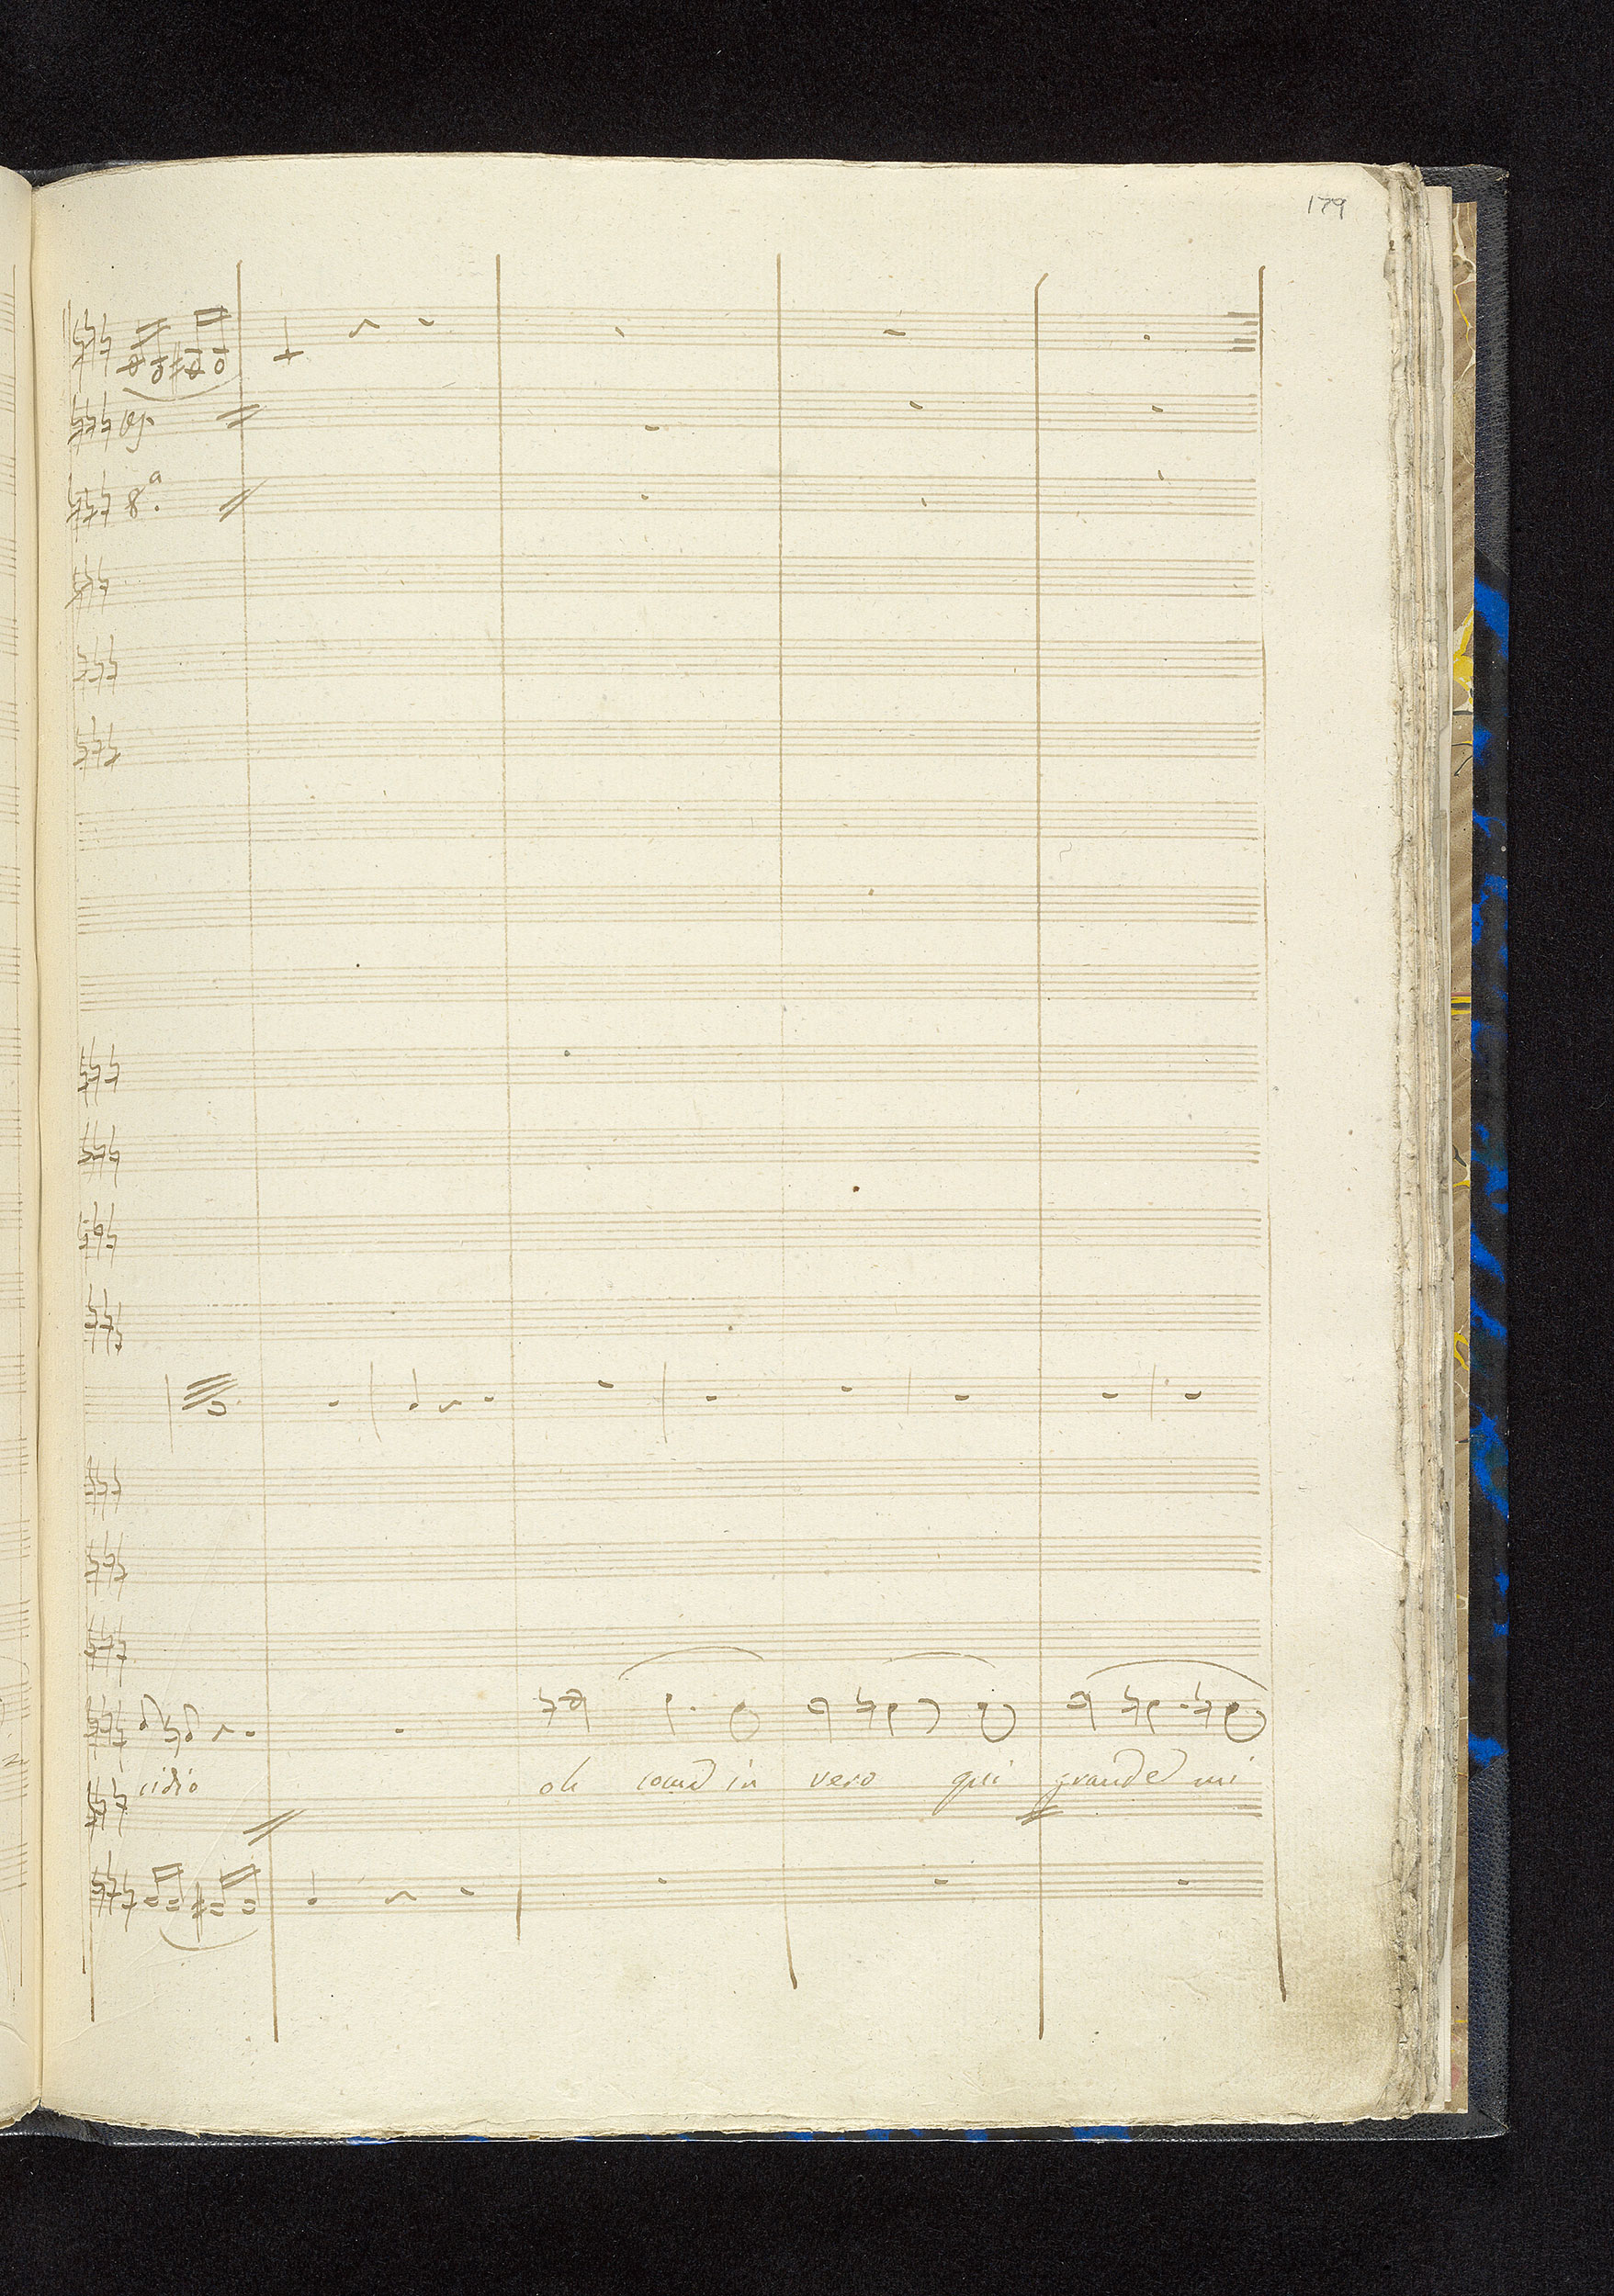 179
8ª
cidio oh come in vero qui grande mi